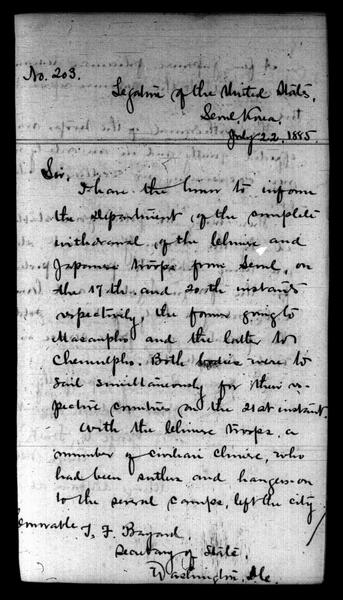 No. 203.
Legation of the United States,
Seoul, Korea,
July 22, 1885.
Sir,
I have the honor to inform
the Department, of the complete
withdrawal, of the Chinese and
Japanese troops from Seoul, on
the 17th and 20th instants
respectively, the former going to
Masanpho and the latter to
Chemulpho. Both bodies were to
sail simultaneously for their re-
spective countries on the 21st instant.
With the Chinese troops, a
number of civilian Chinese, who
had been sutlers and hangerson
to the several camps, left the city
Honorable T. F. Bayard,
Secretary of State,
Washington, D.C.